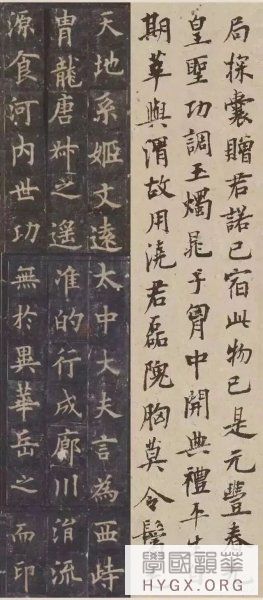 局探囊贈君諾已宿此物已是元豐春先
皇聖功調玉燭晁子胷中開典禮平生
期莘與渭故用澆君磊隗胸莫令鬢
天地系姬文遠
冑龍唐叔之遥
源食河内世功
太中大夫言為西峙
准的行成廊川涓流
無於異華岳之而印
學國韻華
HYGX.ORG